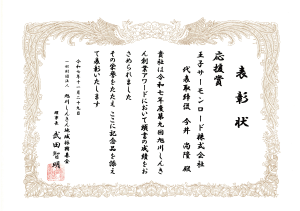 表彰状
応援賞
王子サーモンロード株式会社
代表取締役 今井 尚隆 殿
貴社は令和七年度第九回旭川しんき
ん創業アワードにおいて頭書の成績をお
さめられました
その栄誉をたたえ ここに記念品を添え
て表彰いたします
令和七年十一月二十九日
一般財団法人 旭川しんきん地域振興基金
理事長 武田智明